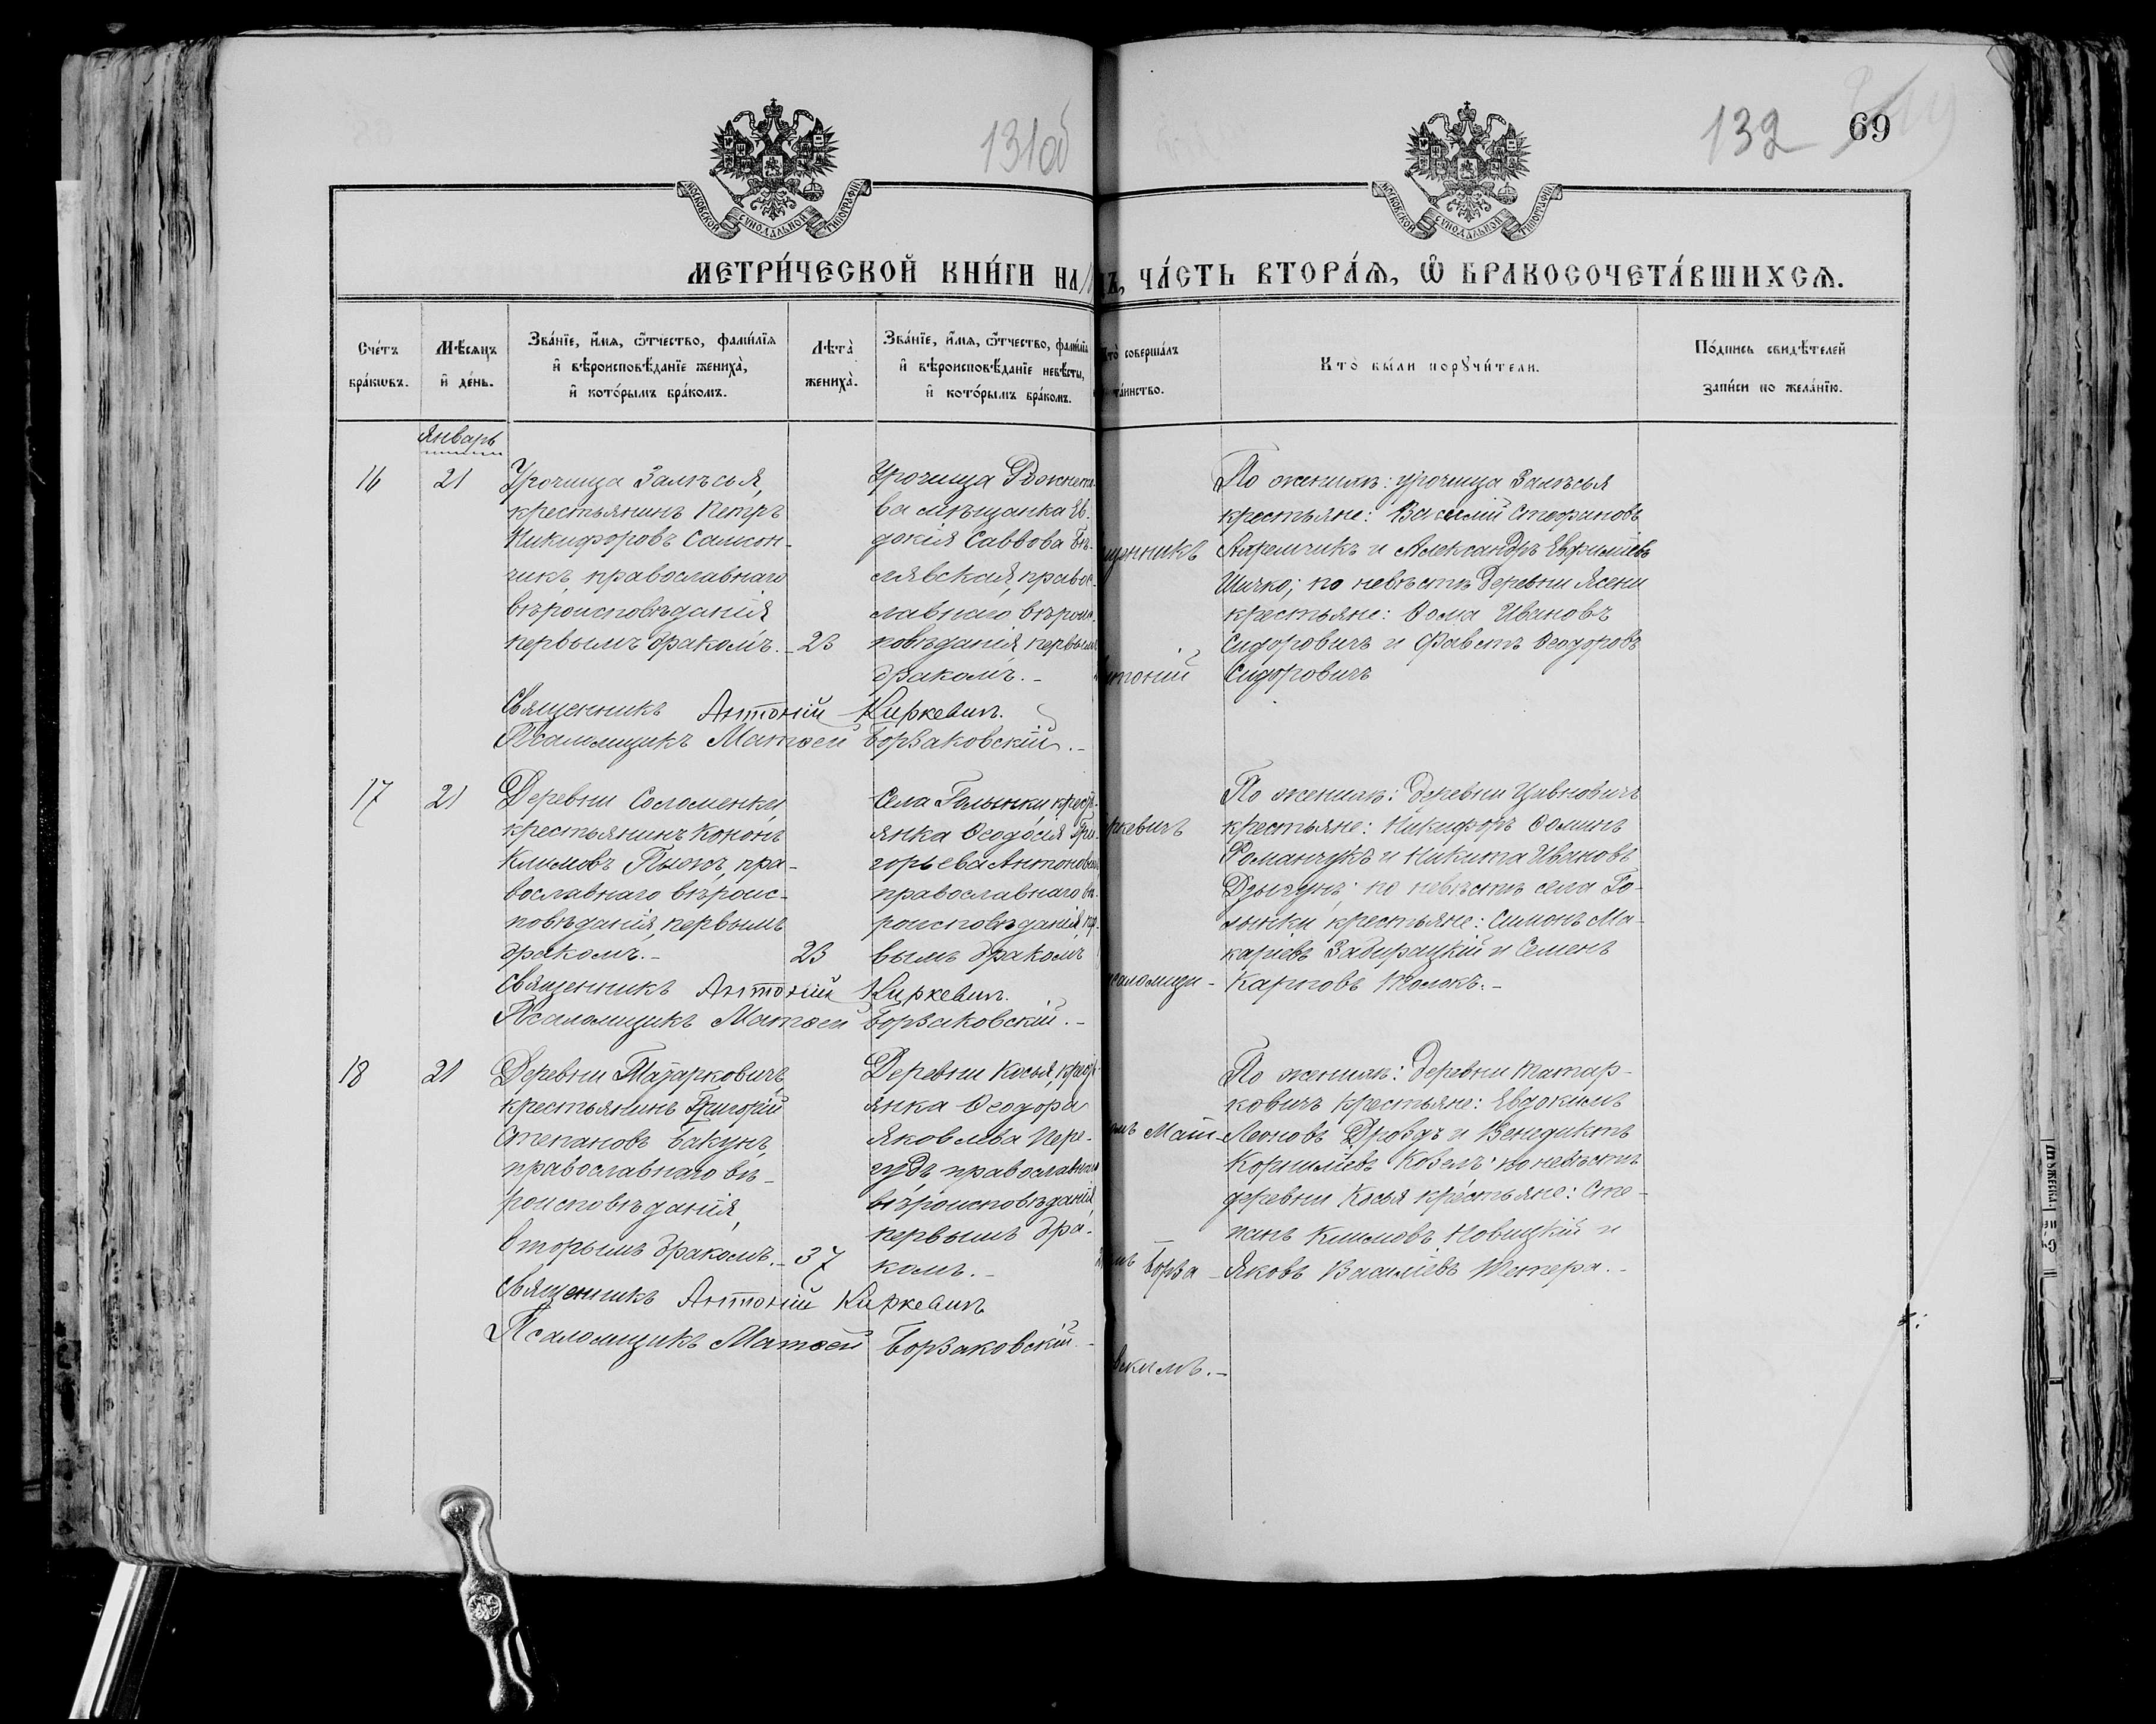 131об
132
69
МОСКОВСКОЙ СУНОДАЛЬНОЙ ТИПОГРАФІИ
МОСКОВСКОЙ СУНОДАЛЬНОЙ ТИПОГРАФІИ
МЕТРИ́ЧЕСКОЙ КНИ́ГИ НА
ЧА́СТЬ ВТОРА́Ѧ, Ѿ БРАКОСОЧЕТА́ВШИХСѦ.
Сче́тъ
бра́кѡвъ.
Мѣ́сяцъ
и҆ де́нь.
Зва́нїе, и҆́мѧ, ѻ҆́тчество, фами́лїѧ
и҆ вѣроисповѣ́данїе жениха̀,
и҆ кото́рымъ бра́комъ.
Лѣ́та̀
жениха̀.
Зва́нїе, и҆́мѧ, ѻ҆́тчество, фами́лїѧ
и҆ вѣроисповѣ́данїе невѣ́сты,
и҆ кото́рымъ бра́комъ.
соверша́лъ
та́инство.
Кто̀ бы́ли порꙋчи́тели.
По́дпись свидѣ́телей
за́писи по жела́нїю.
Январь
16
21
Урочища Залѣсья,
крестьянинъ Петръ
Никифоровъ Самсон-
чикъ, православнаго
вѣроисповѣданія
первымъ бракомъ. - 23
Урочища
ва мѣщанка Ев-
докія Саввова Бѣ-
лявская, правос-
лавнаго вѣроис-
повѣданія, первымъ
бракомъ. -
щенникъ
нтоній
По женихѣ: урочища Залѣсья
крестьяне: Василій Стефановъ
и Александръ Евфиміевъ
Шичко; по невѣстѣ деревни Ясени
крестьяне: Ѳома Ивановъ
Сидоровичъ и Фавстъ Ѳеодоровъ
Сидоровичъ
Священникъ Антоній Киркевичъ.
Псаломщикъ Матѳей Борзаковскій. -
17
21
Деревни Соломенки,
крестьянинъ Кононъ
Климовъ Пыжъ, пра-
вославнаго вѣроис-
повѣданія, первымъ
бракомъ. - 23
Села Голынки, крест-
янка Ѳеодосія Гри-
горьева
православнаго вѣ-
роисповѣданія, пер-
вымъ бракомъ
ркевичъ
саломщи-
По женихѣ: деревни Цивновичъ
крестьяне: Никифоръ Ѳоминъ
Романчукъ и Никита Ивановъ
Дзыгунъ; по невѣстѣ села Го-
лынки крестьяне: Симонъ Ма-
каріевъ Забирацкій и Семенъ
Карповъ Толокъ. -
Священникъ Антоній Киркевичъ.
Псаломщикъ Матѳей Борзаковскій. -
18
21
Деревни Татарковичъ,
крестьянинъ Григорій
Степановъ Бакунъ,
православнаго вѣ-
роисповѣданія,
вторымъ бракомъ. - 37
Деревни Косья, крест-
янка Ѳеодора
Яковлева Пере-
гудъ, православнаго
вѣроисповѣданія,
первымъ бра-
комъ. -
омъ Мат-
Борза-
скимъ. -
По женихѣ: деревни Татар-
ковичъ крестьяне: Евдокимъ
Леоновъ Дроздъ и Венедиктъ
Корниліевъ Козелъ; по невѣстѣ
деревни Косья крестьяне: Сте-
панъ Климовъ Новицкій и
Яковъ Василіевъ Тетера. -
Священникъ Антоній Киркевичъ
Псаломщикъ Матѳей Борзаковскій. -